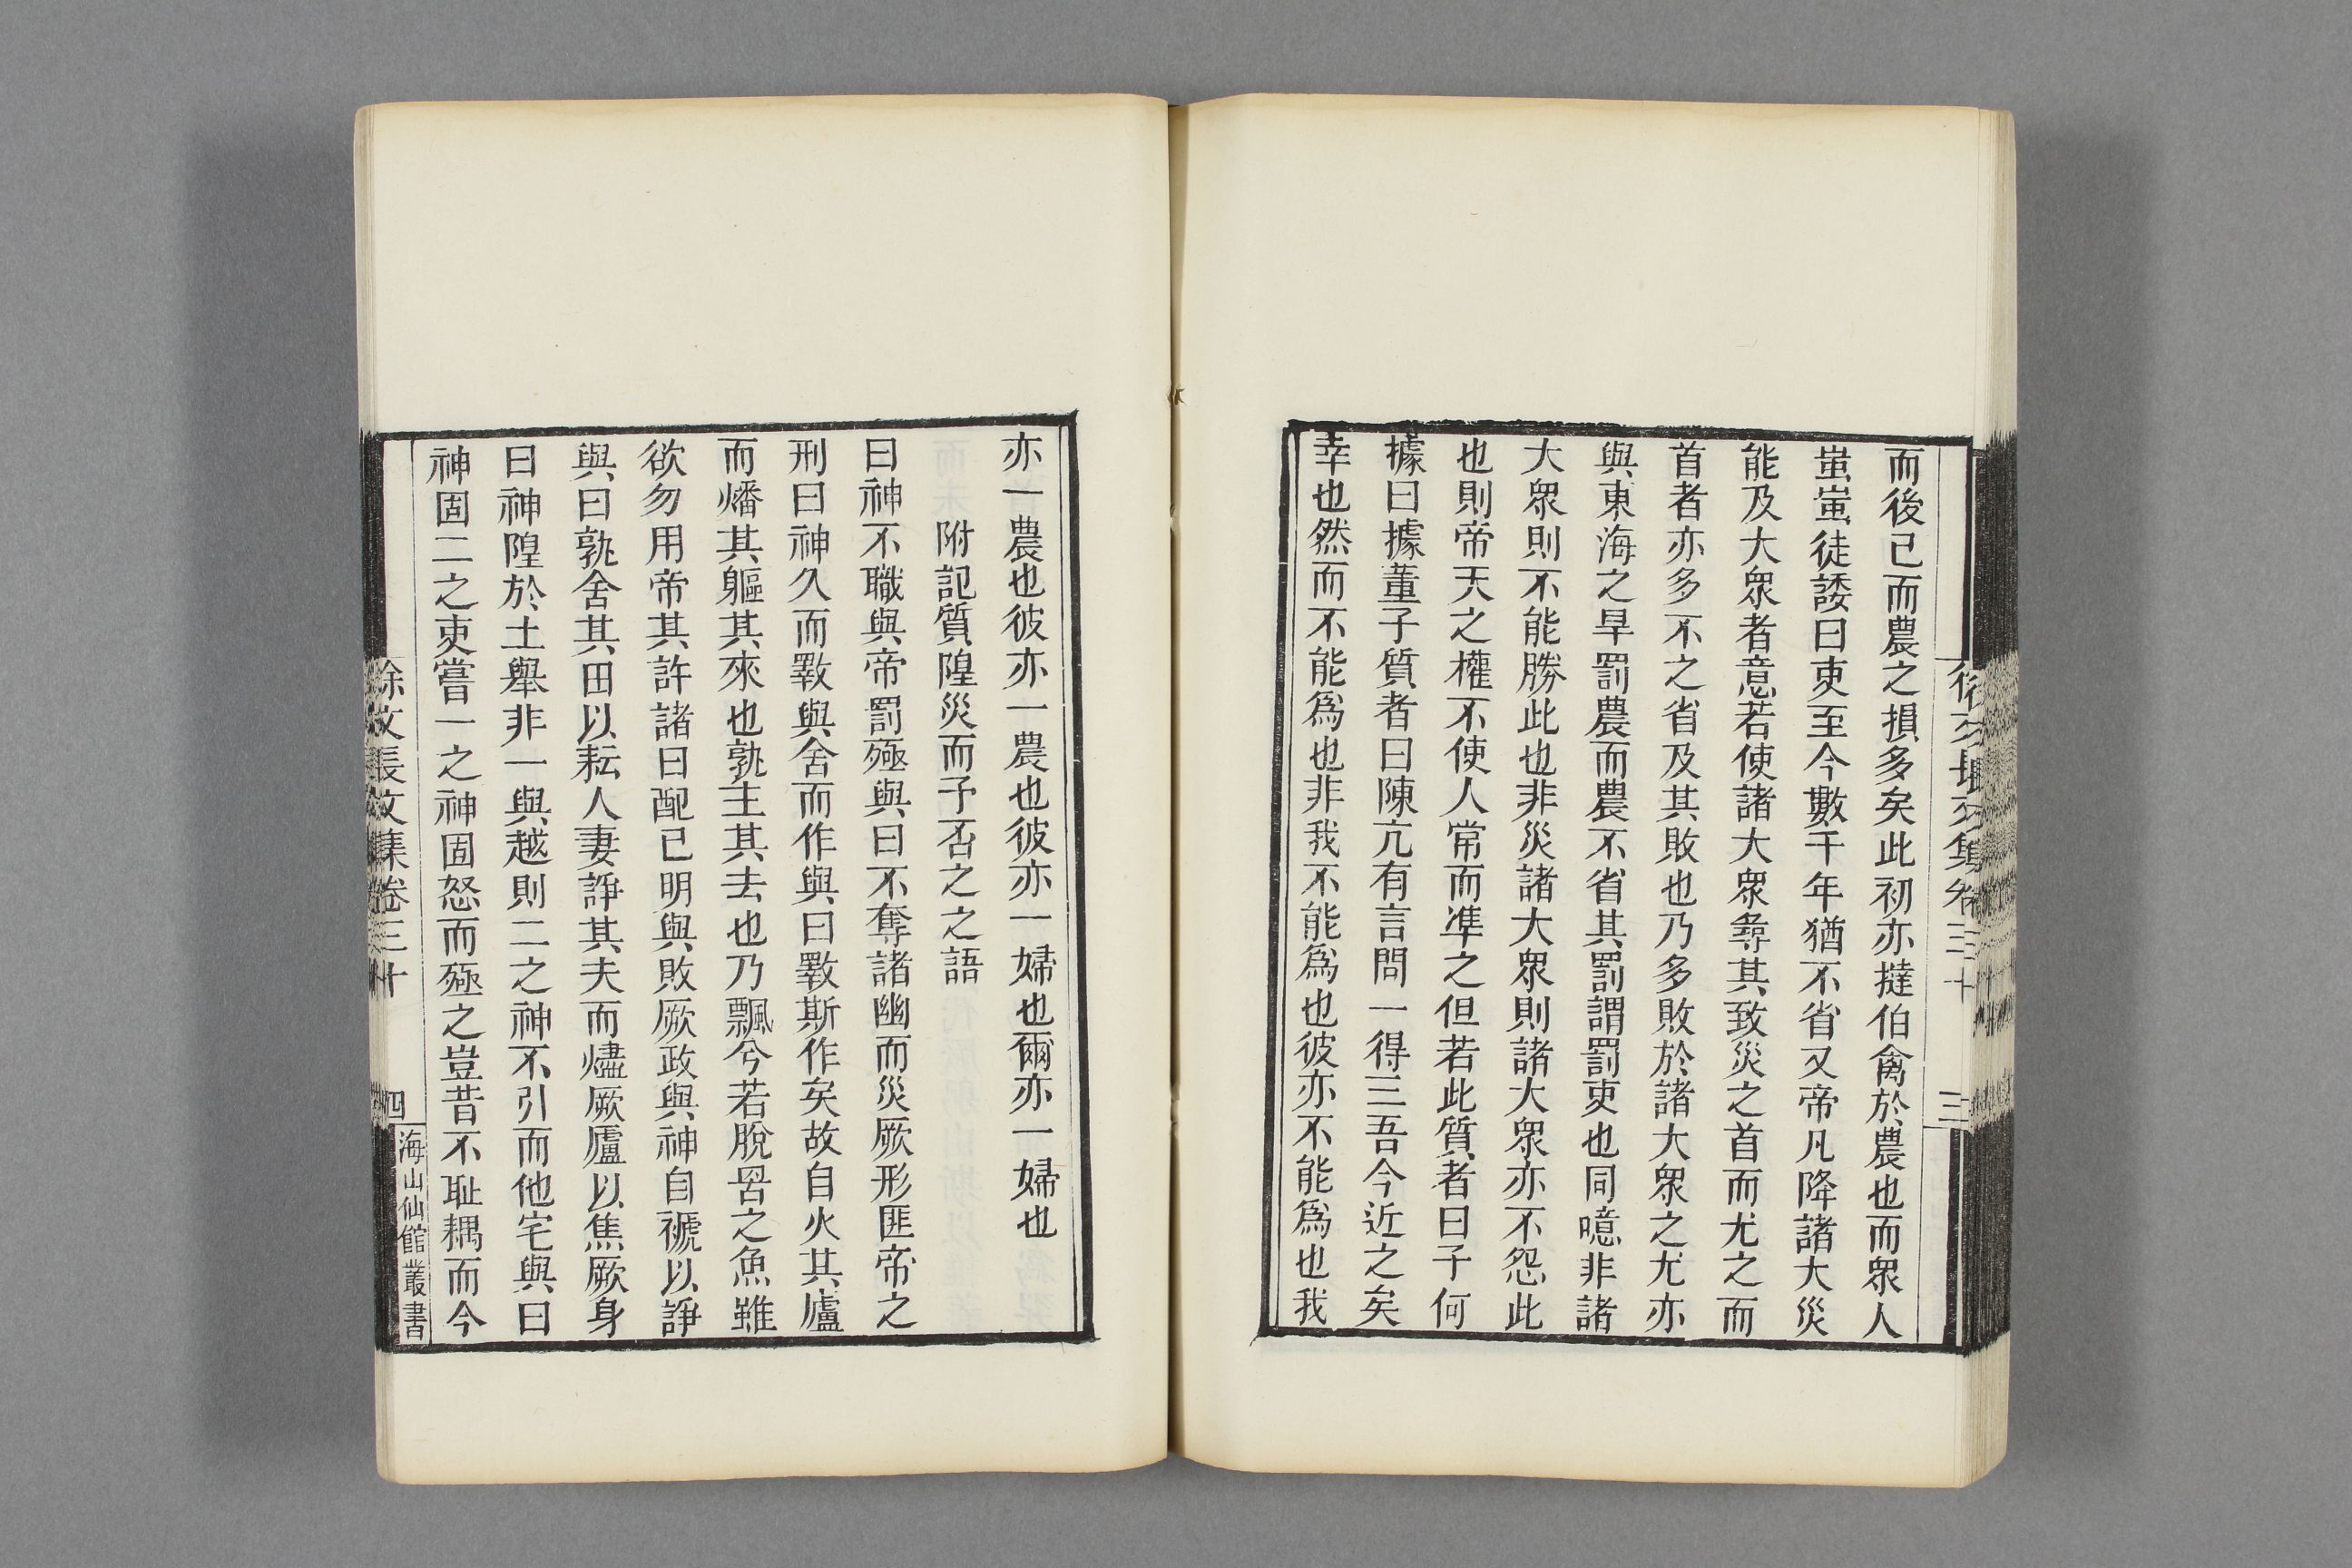 而後已而農之損多矣此初亦撻伯禽於農也而衆人
蚩蚩徒諉曰吏至今數千年猶不省又帝凡降諸大災
能及大衆者意若使諸大衆彝其致災之首而尤之而
首者亦多不之省及其敗也乃多敗於諸大衆之尤亦
與東海之旱罰農而農不省其罰謂罰吏也同噫非諸
大衆則不能勝此也非災諸大衆則諸大衆亦不怨此
也則帝天之權不使人常而準之但若此質者曰子何
據曰據董子質者曰陳亢有言問一得三吾今近之矣
幸也然而不能爲也非我不能爲也彼亦不能爲也我
徐文長文集卷三十
三
亦一農也彼亦一農也彼亦一婦也爾亦一婦也
附記質隍災而予否之之語
曰神不職與帝罰殛與曰不奪諸幽而災厥形匪帝之
刑曰神久而斁與舍而作與曰斁斯作矣故自火其廬
而燔其軀其來也孰主其去也乃飄兮若脫罟之魚雖
欲勿用帝其許諸曰配已明與敗厥政與神自褫以諍
與曰孰舍其田以耘人妻諍其夫而燼厥廬以焦厥身
曰神隍於土舉非一與越則二之神不引而他宅與曰
神固二之吏嘗一之神固怒而殛之豈昔不耻耦而今
徐文長文集卷三十
四
海山仙館叢書